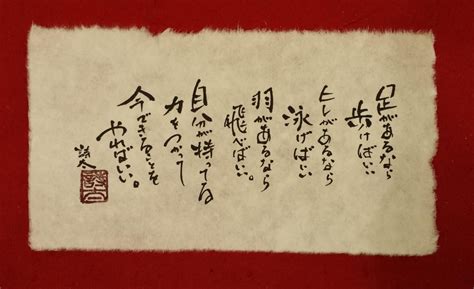 足があるなら
歩けばいい
ヒレがあるなら
泳げばいい
羽があるなら
飛べばいい。
自分が持ってる
力をつかって
今できることを
やればいい。